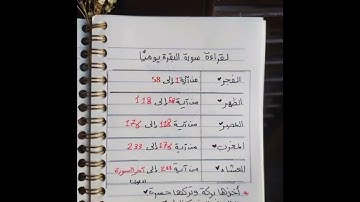 لقراءة سورة البقرة يوميًا
الفجر♥ من آية 1 إلى 58
الظهر♥ من آية 58 إلى 118
العصر♥ من آية 118 إلى 176
المغرب♥ من آية 176 إلى 233
العشاء♥ من آية 233 إلى آخر السورة
أخذها بركة وتركها حسرة